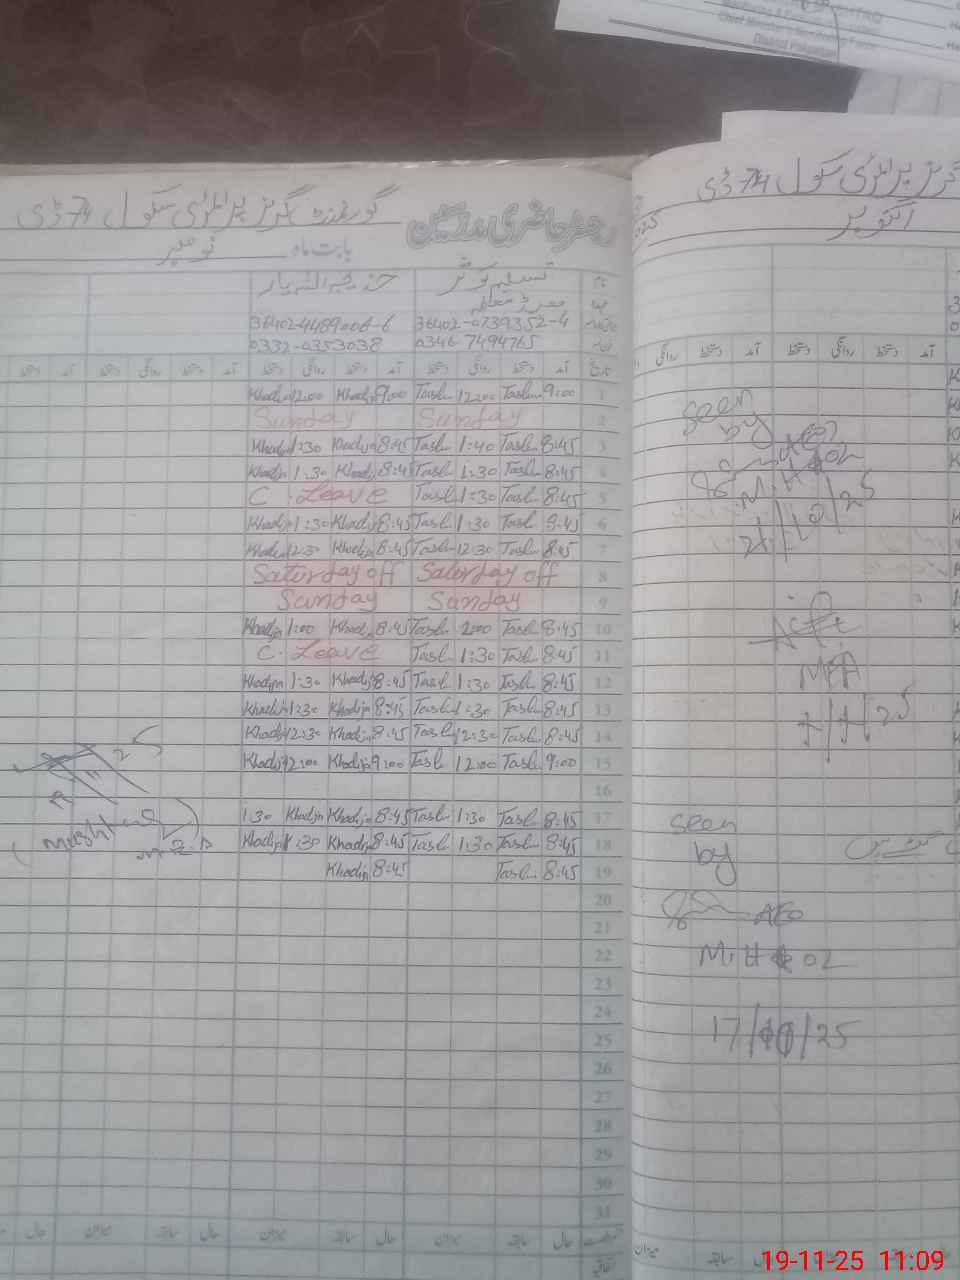 District Pakpattan
رجسٹر حاضری مدرسین
گورنمنٹ گرلز پرائمری سکول 74 ڈی
بابت ماہ نومبر
نام تسلیم کوثر
عہدہ
36402-0739352-4 36402-4489006-6
0346-7494765 0332-0353038
تاریخ آمد دستخط روانگی دستخط آمد دستخط روانگی دستخط آمد دستخط روانگی دستخط
1 9:00 Taslm 12:00 Taslm 9:00 Khadija 12:00 Khadija
2 Sunday Sunday
3 8:45 Taslm 1:40 Taslm 8:45 Khadija 1:30 Khadija
4 8:45 Taslm 1:30 Taslm 8:45 Khadija 1:30 Khadija
5 8:45 Taslm 1:30 Taslm C. Leave
6 8:45 Taslm 1:30 Taslm 8:45 Khadija 1:30 Khadija
7 8:45 Taslm 12:30 Taslm 8:45 Khadija 12:30 Khadija
8 Saturday off Saturday off
9 Sunday Sunday
10 8:45 Taslm 2:00 Taslm 8:45 Khadija 1:00 Khadija
11 8:45 Taslm 1:30 Taslm C. Leave
12 8:45 Taslm 1:30 Taslm 8:45 Khadija 1:30 Khadija
13 8:45 Taslm 1:30 Taslm 8:45 Khadija 1:30 Khadija
14 8:45 Taslm 12:30 Taslm 8:45 Khadija 12:30 Khadija
15 9:00 Taslm 12:00 Taslm 9:00 Khadija 12:00 Khadija
16
17 8:45 Taslm 1:30 Taslm 8:45 Khadija Khadija 1:30
18 8:45 Taslm 1:30 Taslm 8:45 Khadija 1:30 Khadija
19 8:45 Taslm 8:45 Khadija
20
21
22
23
24
25
26
27
28
29
30
31
میزان سابقہ حال میزان سابقہ حال
گرلز پرائمری سکول 74 ڈی
اکتوبر
آمد دستخط روانگی دستخط آمد دستخط روانگی
seen
by
seen
by
AEO
17/10/25
میزان سابقہ حال
19-11-25 11:09